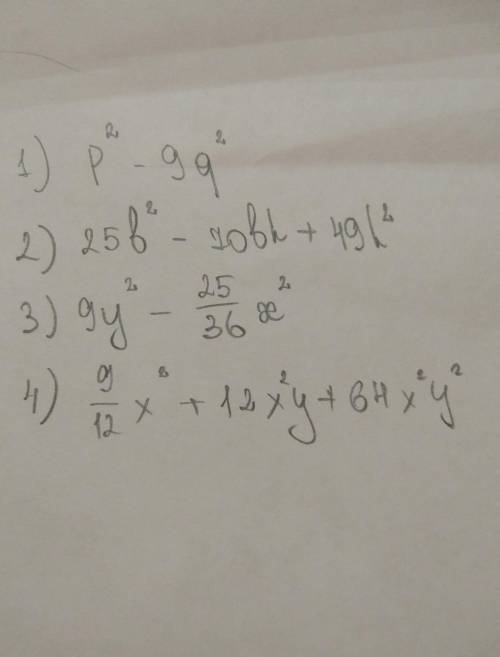 1) p² - 9q²
2) 25b² - 70bh + 49h²
3) 9y² - 25/36 x²
4) 9/12 x² + 12x²y + 64x²y²